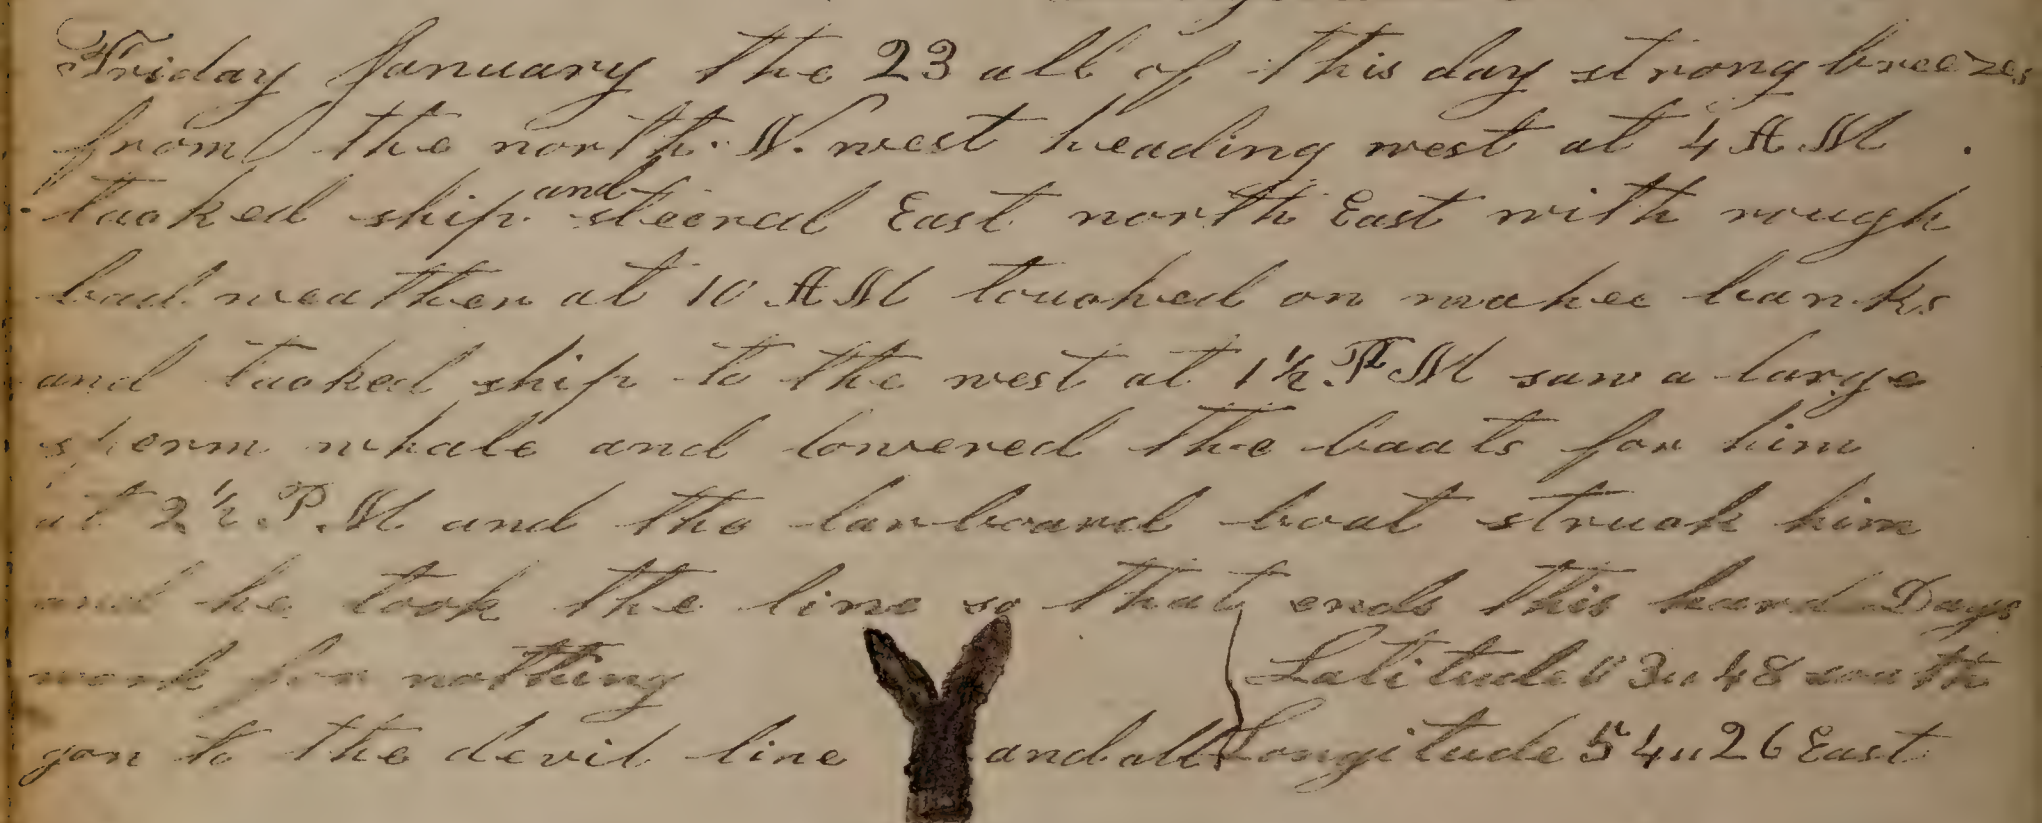 Friday January the 23 all of this day strong breezes
from the north. N. west heading west at 4 A M .
tacked ship. and steered East north East with rough
bad weather at 10 A M touched on mahee banks
and tacked ship to the west at 1 1/2 P M saw a large
sperm whale and lowered the boats for him
at 2 1/2 P M and the larboard boat struck him
and he took the line so that ends this hard Days
work for nothing Latitude 03 " 48 south
gon to the devil line and all Longitude 54 " 26 East